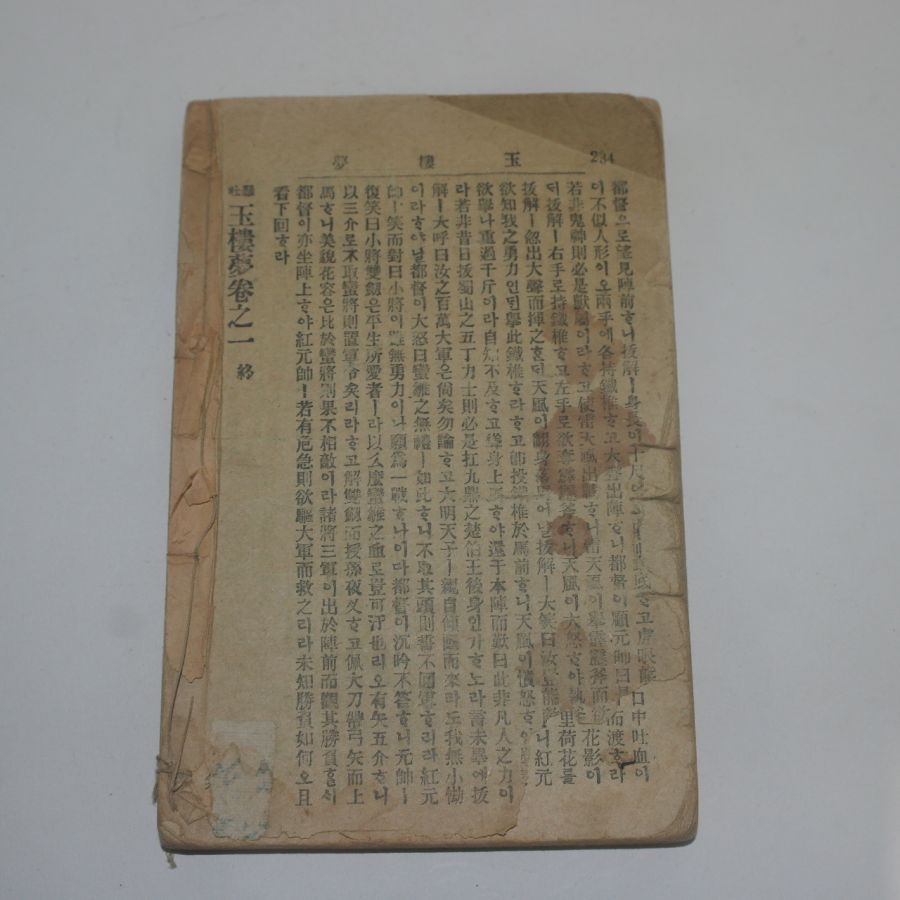 玉樓夢 234
都督으로望見陣前ᄒᆞ니拔解ㅣ身長이十尺 고虎眼 口中吐血이
이不似人形이오兩手에各持鐵椎ᄒᆞ고大 出陣ᄒᆞ니都督이顧元帥曰 渡ᄒᆞ라
若非鬼神則必是獸屬이라ᄒᆞ고使雷天風出戰ᄒᆞ니雷天風이擧霹靂斧而 花影이
더拔解ㅣ右手로持鐵椎ᄒᆞ고左手로欲奪霹靂斧 天風이大怒ᄒᆞ야 里荷花를
拔解ㅣ忽出大聲而揮之ᄒᆞᆫᄃᆡ天風이翻身落馬어날拔解ㅣ大笑曰 니紅元
欲知我之勇力인ᄃᆡᆫ擧此鐵椎ᄒᆞ라ᄒᆞ고 投鐵椎於馬前ᄒᆞ니天風이憤怒ᄒᆞ야
欲擧나重過千斤이라自知不及ᄒᆞ고 身上馬ᄒᆞ야還于本陣而歎曰此非凡人之力이
라若非昔日拔蜀山之五丁力士則必是扛九鼎之楚伯王後身인가ᄒᆞ노라言未畢에拔
解ㅣ大呼曰汝之百萬大軍은尙矣勿論ᄒᆞ고大明天子ㅣ親自傾國而來라도我無小㤼
이라ᄒᆞ야날都督이大怒曰蠻雛之無禮ㅣ如此ᄒᆞ니不取其頭則誓不回軍ᄒᆞ리라紅元
帥ㅣ笑而對曰小將이雖無勇力이나願爲一戰ᄒᆞ나이다都督이沉吟不答ᄒᆞ니元帥ㅣ
復笑曰小將雙釰은平生所愛者ㅣ라以么麽蠻雛之血로豈可汙也리오有矢五介ᄒᆞ니
以三介로不取蠻將則置軍令矣리라ᄒᆞ고解雙釰而授孫夜叉ᄒᆞ고佩大刀帶弓矢而上
馬ᄒᆞ니美貌花容은比於蠻將則果不相敵이라諸將三軍이出於陣前而觀其勝負ᄒᆞᆯᄉᆡ
都督이亦坐陣上ᄒᆞ야紅元帥ㅣ若有危急則欲驅大軍而救之리라未知勝負如何오且
看下回ᄒᆞ라
懸吐 玉樓夢卷之一 終